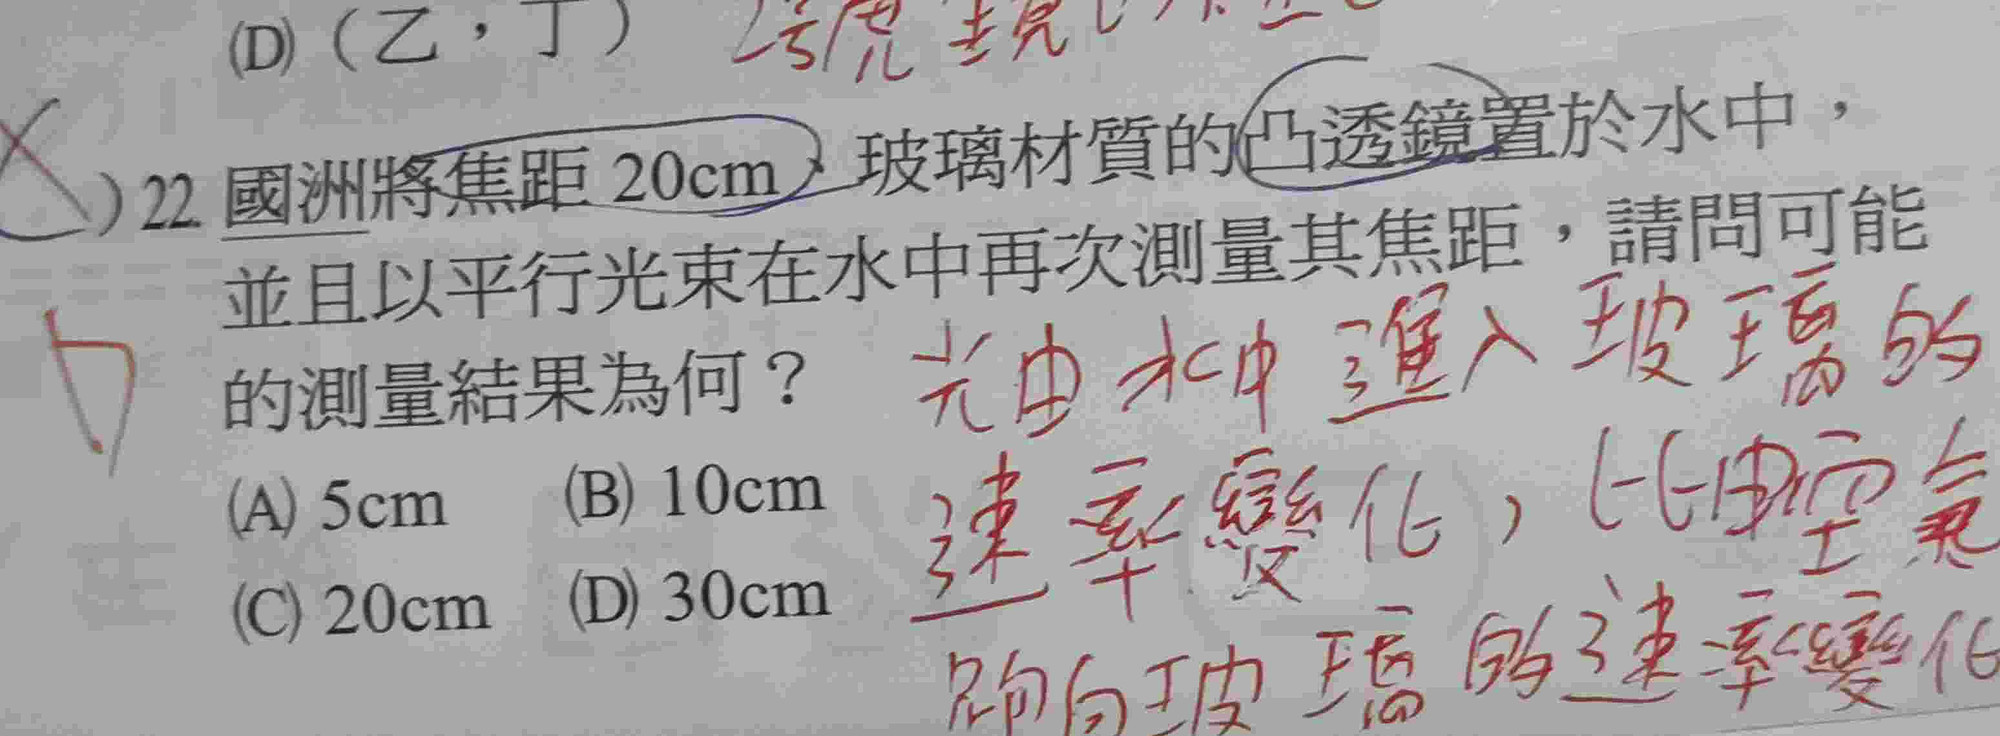 (D)（乙，丁）
)22 國洲將焦距 20cm、玻璃材質的凸透鏡置於水中，
並且以平行光束在水中再次測量其焦距，請問可能
的測量結果為何？
光由水中進入玻璃的
(A) 5cm (B) 10cm
速率變化，比由空氣
(C) 20cm (D) 30cm
向玻璃的速率變化